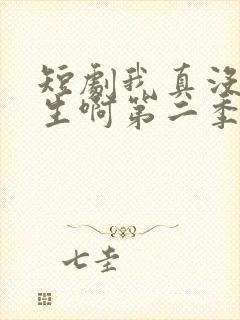 短剧我真没
生啊第二季
七圭